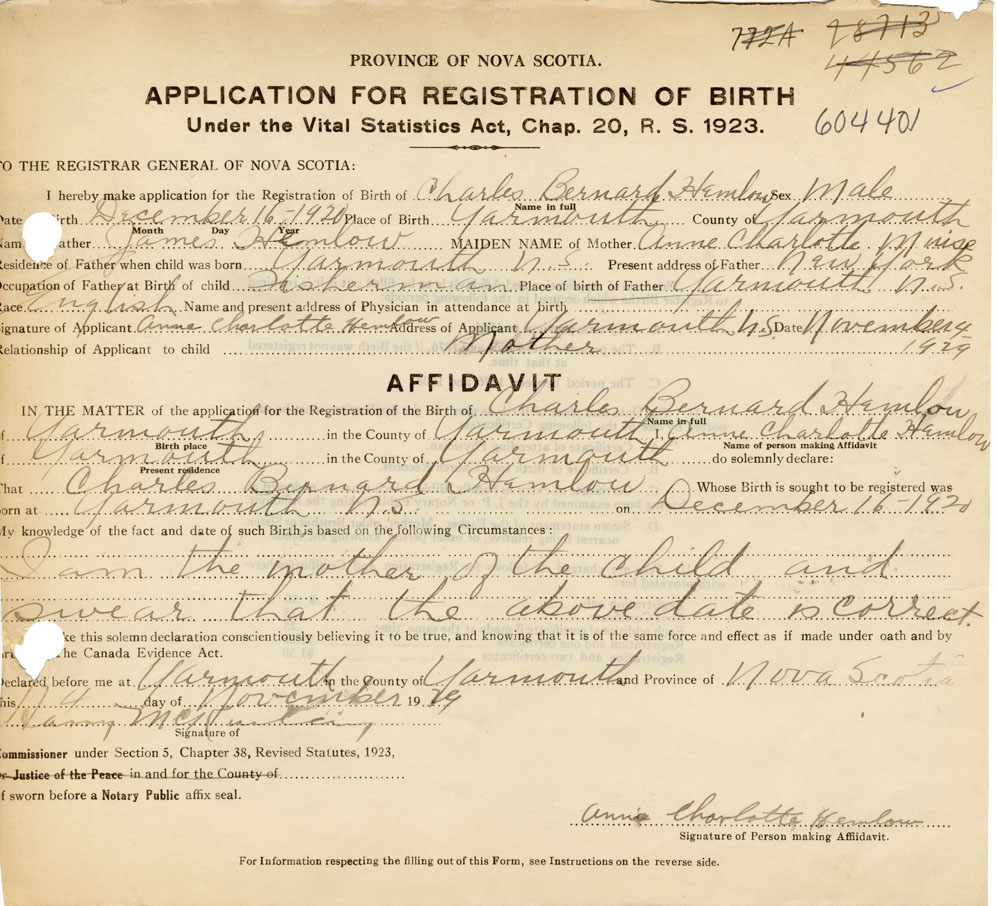 772A 28713
44562
PROVINCE OF NOVA SCOTIA.
APPLICATION FOR REGISTRATION OF BIRTH
Under the Vital Statistics Act, Chap. 20, R. S. 1923.
604401
TO THE REGISTRAR GENERAL OF NOVA SCOTIA:
I hereby make application for the Registration of Birth of Charles Bernard Hemlow Sex Male
Name in full
Date Birth December 16-1920 Place of Birth Yarmouth County of Yarmouth
Month Day Year
Name Father James Hemlow MAIDEN NAME of Mother Anne Charlotte Muise
Residence of Father when child was born Yarmouth N.S. Present address of Father New York
Occupation of Father at Birth of child Fisherman Place of birth of Father Yarmouth N.S.
Race English Name and present address of Physician in attendance at birth
Signature of Applicant Anne Charlotte Hemlow Address of Applicant Yarmouth N.S. Date November 4
Relationship of Applicant to child Mother 1929
AFFIDAVIT
IN THE MATTER of the application for the Registration of the Birth of Charles Bernard Hemlow
Name in full
of Yarmouth in the County of Yarmouth I, Anne Charlotte Hemlow
Birth place Name of person making Affidavit
of Yarmouth in the County of Yarmouth do solemnly declare:
Present residence
That Charles Bernard Hemlow Whose Birth is sought to be registered was
born at Yarmouth N.S. on December 16-1920
My knowledge of the fact and date of such Birth is based on the following Circumstances:
I am the mother of the child and
swear that the above date is correct.
ke this solemn declaration conscientiously believing it to be true, and knowing that it is of the same force and effect as if made under oath and by
The Canada Evidence Act.
Declared before me at Yarmouth in the County of Yarmouth and Province of Nova Scotia
this 4 day of November 1929
Signature of
Commissioner under Section 5, Chapter 38, Revised Statutes, 1923,
or Justice of the Peace in and for the County of
If sworn before a Notary Public affix seal.
Anne Charlotte Hemlow
Signature of Person making Affiidavit.
For Information respecting the filling out of this Form, see Instructions on the reverse side.